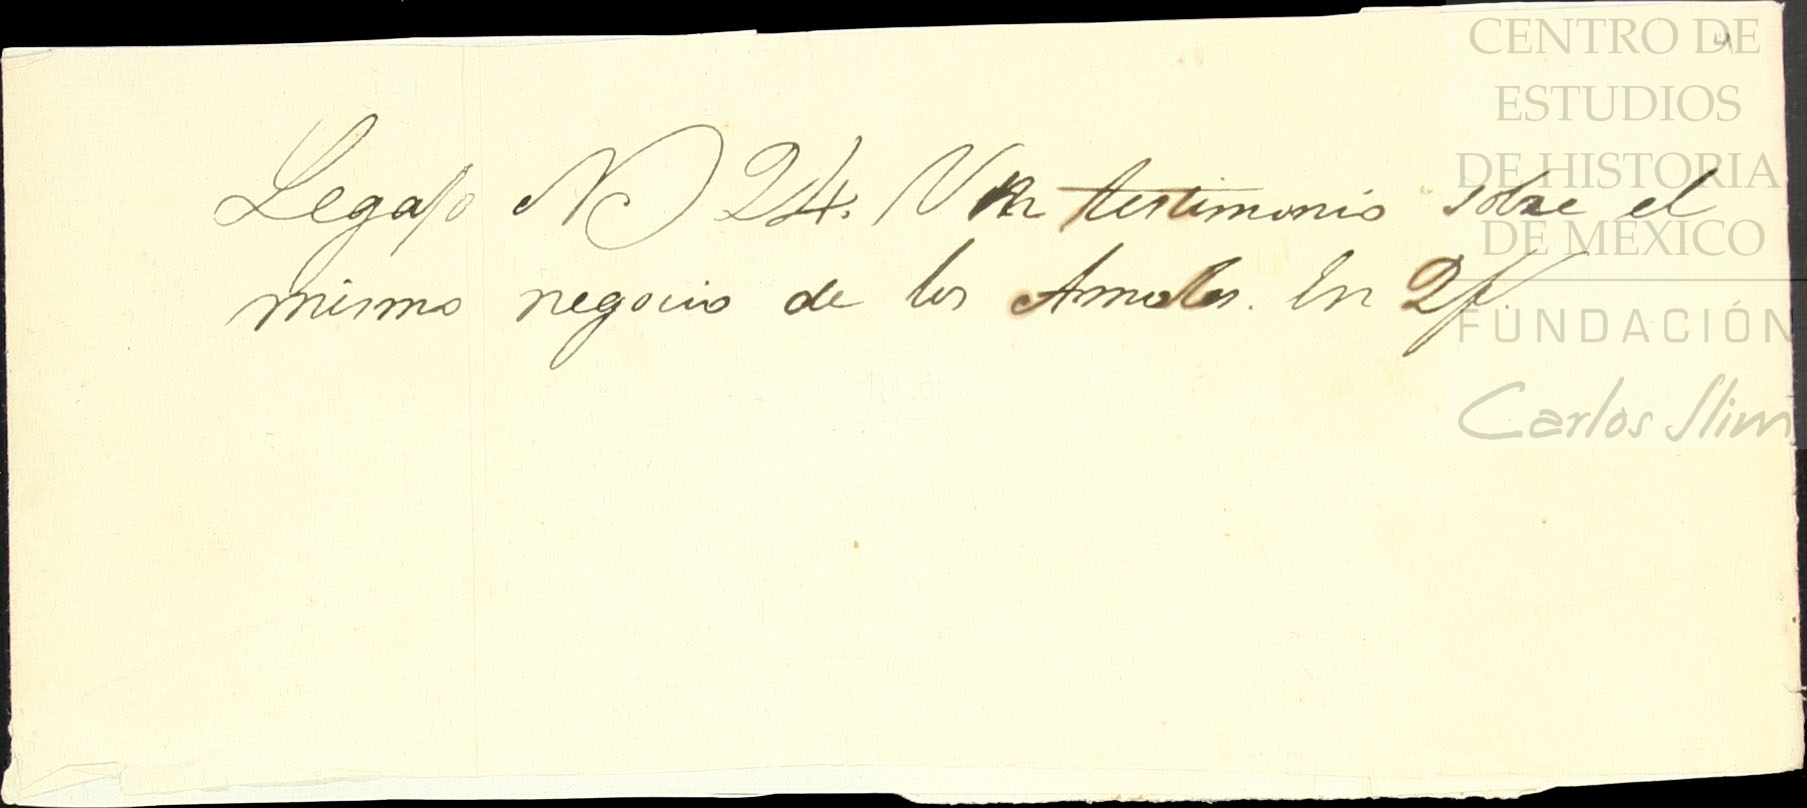 Legajo N 24. Un testimonio sobre el
mismo negocio de los Amoles. En 2 f.
4
CENTRO DE
ESTUDIOS
DE HISTORIA
DE MÉXICO
FUNDACIÓN
Carlos Slim